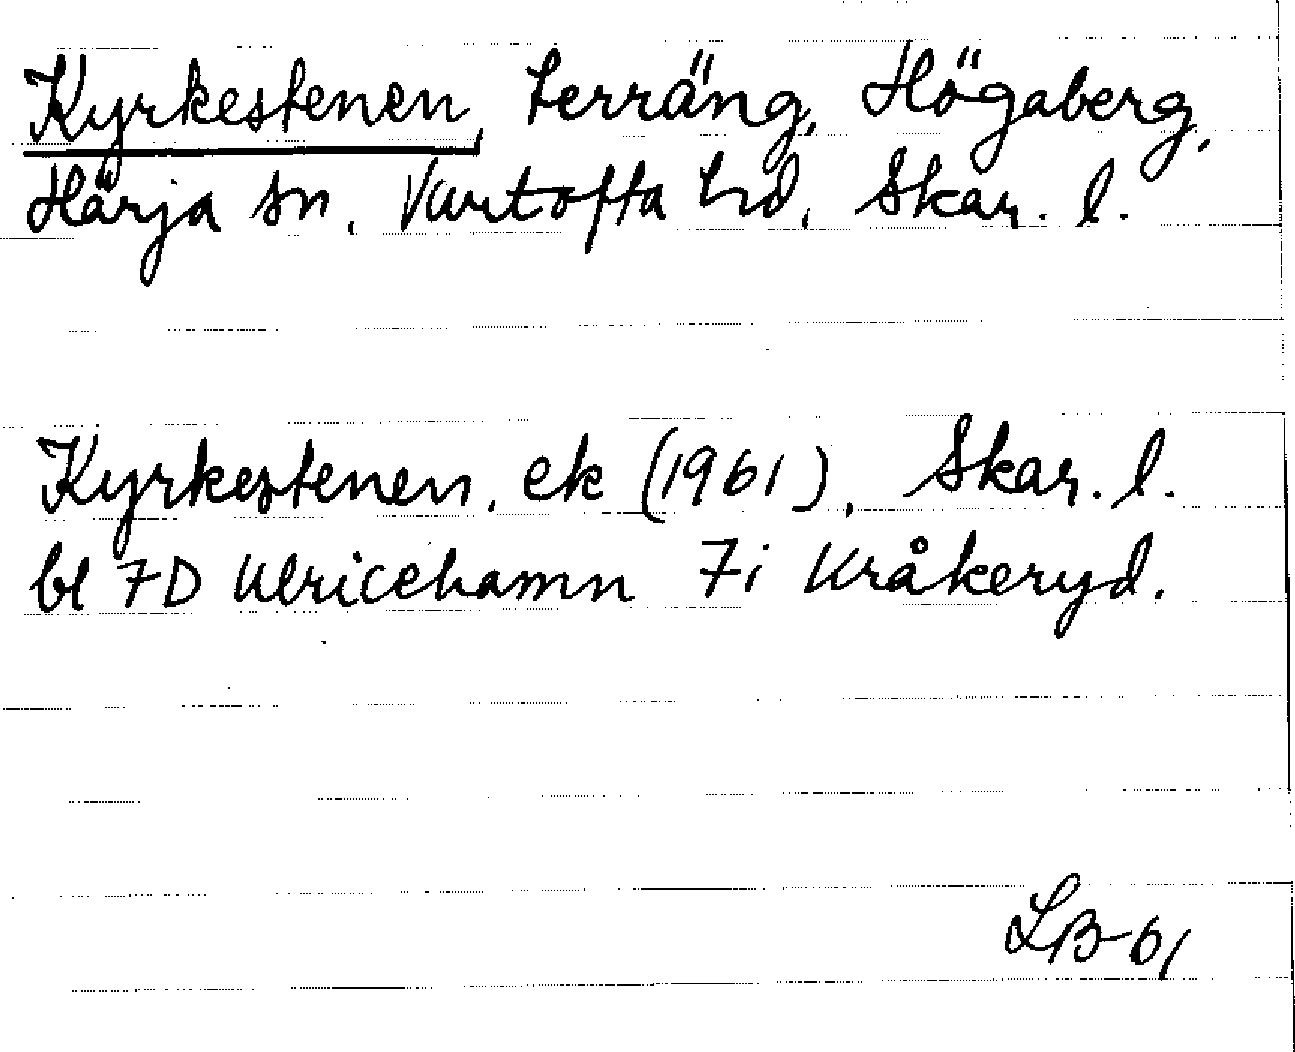 Kyrkestenen, terräng, Högaberg,
Härja sn, Vartofta hd, Skar. l.
Kyrkestenen, ek (1961), Skar. l.
bl 7D Ulricehamn 7i Kråkeryd.
LB-61